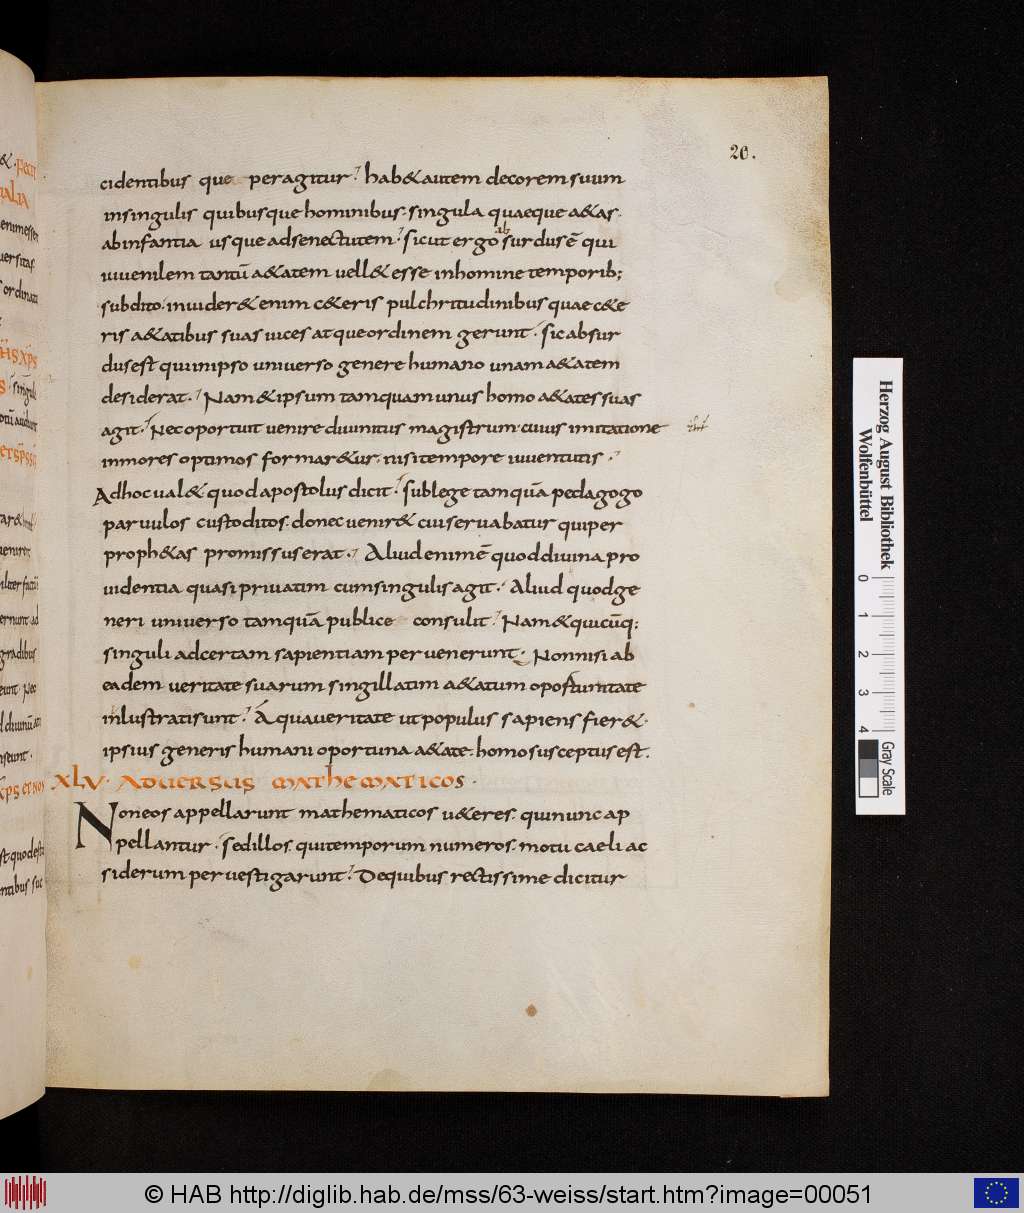 20.
cidentibus que peragitur. hab& autem decorem suum
insingulis quibusque hominibus. singula quaeque a&as.
abinfantia usque adsenectutem. sicut ergo absurdus ē qui
iuuenilem tantū a&atem uell& esse inhomine temporib;
subdito. inuider& enim c&eris pulchritudinibus quae c&e
ris a&atibus suas uices atque ordinem gerunt. sic absur
dus est qui inipso uniuerso genere humano unam a&atem
desiderat. Nam & ipsum tamquam unus homo a&ates suas
agit. Nec oportuit uenire diuinitus magistrum. cuius imitatione
inmores optimos formar&ur. nisi tempore iuuentutis.
Adhoc ual& quod apostolus dicit. sub lege tamquā pedagogo
paruulos custoditos. donec uenir& cui seruabatur qui per
proph&as promissus erat. Aliud enim ē quod diuina pro
uidentia quasi priuatim cum singulis agit. Aliud quod ge
neri uniuerso tamquā publice consulit. Nam & quicūq;
singuli adcertam sapientiam peruenerunt. Non nisi ab
eadem ueritate suarum singillatim a&atum oportunitate
inlustrati sunt. A qua ueritate ut populus sapiens fier&.
ipsius generis humani oportuna a&ate. homo susceptus est.
XLV. ADVERSUS MATHEMATICOS.
Non eos appellarunt mathematicos u&eres. qui nunc ap
pellantur. sed illos. qui temporum numeros. motu caeli ac
siderum peruestigarunt. De quibus rectissime dicitur
Herzog August Bibliothek
Wolfenbüttel
0 1 2 3 4
Gray Scale
© HAB http://diglib.hab.de/mss/63-weiss/start.htm?image=00051